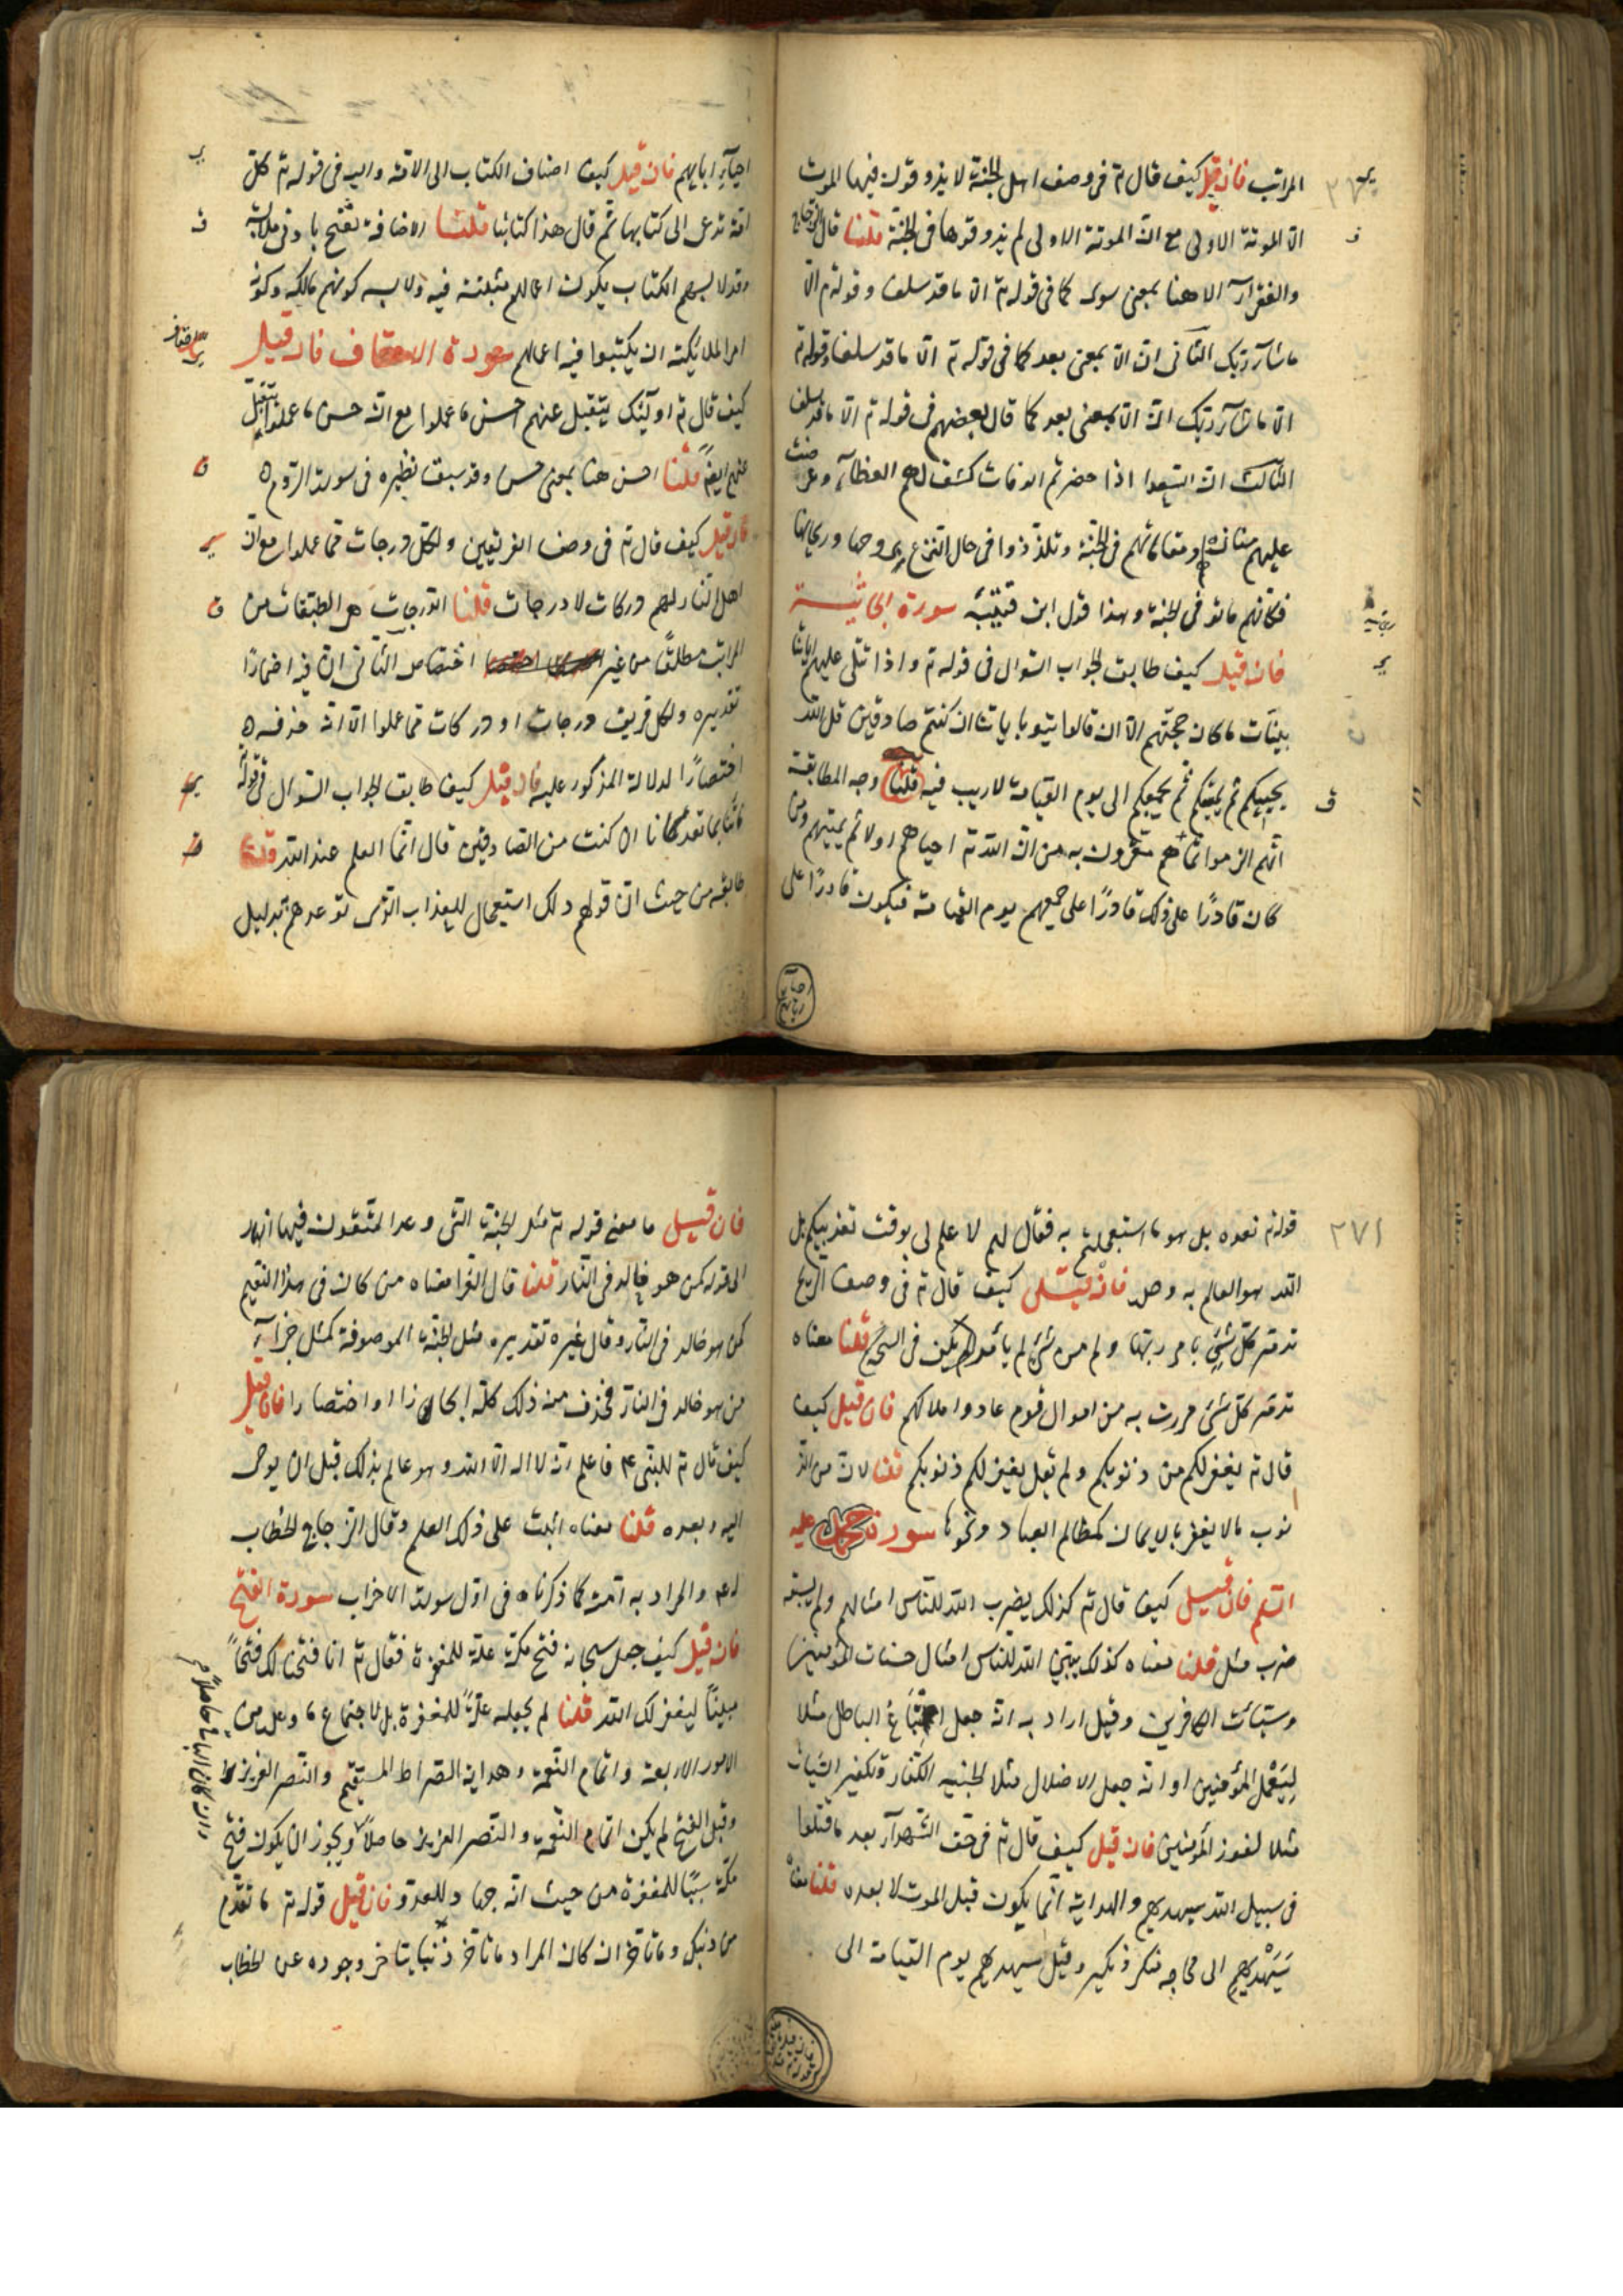 المراتب فان قيل كيف قال تم فى وصف اهل الجنة لا يذوقون فيها الموت
الا الموتة الاولى مع ان الموتة الاولى لم يذوقوها فى الجنة قلنا قال الزجاج
والفرآء الا هنا بمعنى سوى كما فى قوله تم الا ما قد سلف و قوله تم الا
ما شآء ربك الثانى ان الا بمعنى بعد كما فى قوله تم الا ما قد سلف وقوله تم
الا ما شآء ربك ان الا بمعنى بعد كما قال بعضهم فى قوله تم الا ما قد سلف
الثالث ان السعدا اذا حضرتهم الوفات كشف لهم الغطآء وعرضت
عليهم منازلهم ومقاماتهم فى الجنة وتلذذوا فى حال النزع بروحها وريحانها
فكانهم ماتوا فى الجنة وهذا قول ابن قتيبة سورة الجاثية
فان قيل كيف طابق الجواب السوال فى قوله تم واذا تتلى عليهم اياتنا
بينات ما كان حجتهم الا ان قالوا ائتوا باباتنا ان كنتم صادقين قل الله
يحييكم ثم يميتكم ثم يجمعكم الى يوم القيامة لا ريب فيه قلنا وجه المطابقة
انهم الزموا بما هم مقرون به من ان الله تم احياهم اولا ثم يميتهم ومن
كان قادرا على ذلك قادرا على جمعهم يوم القيامة فيكون قادرا على
احيآء ابايهم فان قيل كيف اضاف الكتاب الى الامة واليه فى قوله تم كل
امة تدعى الى كتابها ثم قال هذا كتابنا قلنا الاضافة تصح بادنى ملابسة
وقد لابسهم الكتاب بكون اعمالهم مثبتة فيه ولابسه كونهم مالكه وكونه
امر الملائكة ان يكتبوا فيه اعمالهم سورة الاحقاف فان قيل
كيف قال تم اولئك يتقبل عنهم احسن ما عملوا مع ان حسن ما عملوا يتقبل
عنهم ايضا قلنا احسن هنا بمعنى حسن وقد سبق نظيره فى سورة الروم ٥
فان قيل كيف قال تم فى وصف الفريقين ولكل درجات مما عملوا مع ان
اهل النار لهم دركات لا درجات قلنا الدرجات هى الطبقات من
المراتب مطلقا من غير اختصاص الثانى ان فيه اضمارا
تقديره ولكل فريق درجات او دركات مما عملوا الا انه حذفه ٥
اختصارا لدلالة المذكور عليه فان قيل كيف طابق الجواب السوال فى قوله
فاتنا بما تعدنا ان كنت من الصادقين قال انما العلم عند الله قلنا
طابقه من حيث ان قولهم ذلك استعجال للعذاب الذى توعدهم بدليل
٢٧١
قوله تم بعده بل هو ما استعجلتم به فقال لهم لا علم لى بوقت تعذيبكم بل
الله هو العالم به وحده فان قيل كيف قال تم فى وصف الريح
تدمر كل شئ بامر ربها وكم من شئ لم تدمره الريح قلنا معناه
تدمر كل شئ مررت به من اموال قوم عاد واملاكهم فان قيل كيف
قال تم يغفر لكم من ذنوبكم ولم يقل يغفر لكم ذنوبكم قلنا لان من الذ
نوب ما لا يغفر بالايمان كمظالم العباد ونحوها سورة محمد عليه
السلم فان قيل كيف قال تم كذلك يضرب الله للناس امثالهم ولم يسبق
ضرب مثل قلنا معناه كذلك يبين الله للناس امثال حسنات المؤمنين
وسيئات الكافرين وقيل اراد به انه جعل اتباع الباطل مثلا
لعمل المؤمنين او انه جعل الاضلال مثلا لخيبة الكفار وتكفير السيئات
مثلا لفوز المؤمنين فان قيل كيف قال تم فى حق الشهدآء بعد ما قتلوا
فى سبيل الله سيهديهم والهداية انما يكون قبل الموت لا بعده قلنا معناه
سيهديهم الى محاجة منكر ونكير وقيل سيهديهم يوم القيامة الى
فان قيل ما معنى قوله تم مثل الجنة التى وعد المتقون فيها انهار
الى قوله كمن هو خالد فى النار قلنا قال الفرا معناه من كان فى هذا النعيم
كمن هو خالد فى النار وقال غيره تقديره مثل الجنة الموصوفة كمثل جزآء
من هو خالد فى النار فحذف من ذلك كله ايجازا او اختصارا فان قيل
كيف قال تم للنبى ع م فاعلم انه لا اله الا الله وهو عالم بذلك قبل ان يوحى
اليه وبعده قلنا معناه اثبت على ذلك العلم وقال الزجاج الخطاب
له ع م والمراد به امته كما ذكرناه فى اول سورة الاحزاب سورة الفتح
فان قيل كيف جعل سبحانه فتح مكة علة للمغفرة فقال تم انا فتحنا لك فتحا
مبينا ليغفر لك الله قلنا لم يجعله علة للمغفرة بل لاجتماع ما وعده من
الامور الاربعة واتمام النعمة وهداية الصراط المستقيم والنصر العزيز
وقبل الفتح لم يكن اتمام النعمة والنصر العزيز حاصلا ويجوز ان يكون فتح
مكة سببا للمغفرة من حيث انه جهاد للعدو فان قيل قوله تم ما تقدم
من ذنبك وما تاخر ان كان المراد ما تاخر ذنبا يتاخر وجوده عن الخطاب
وان كان الباقى حاصلا